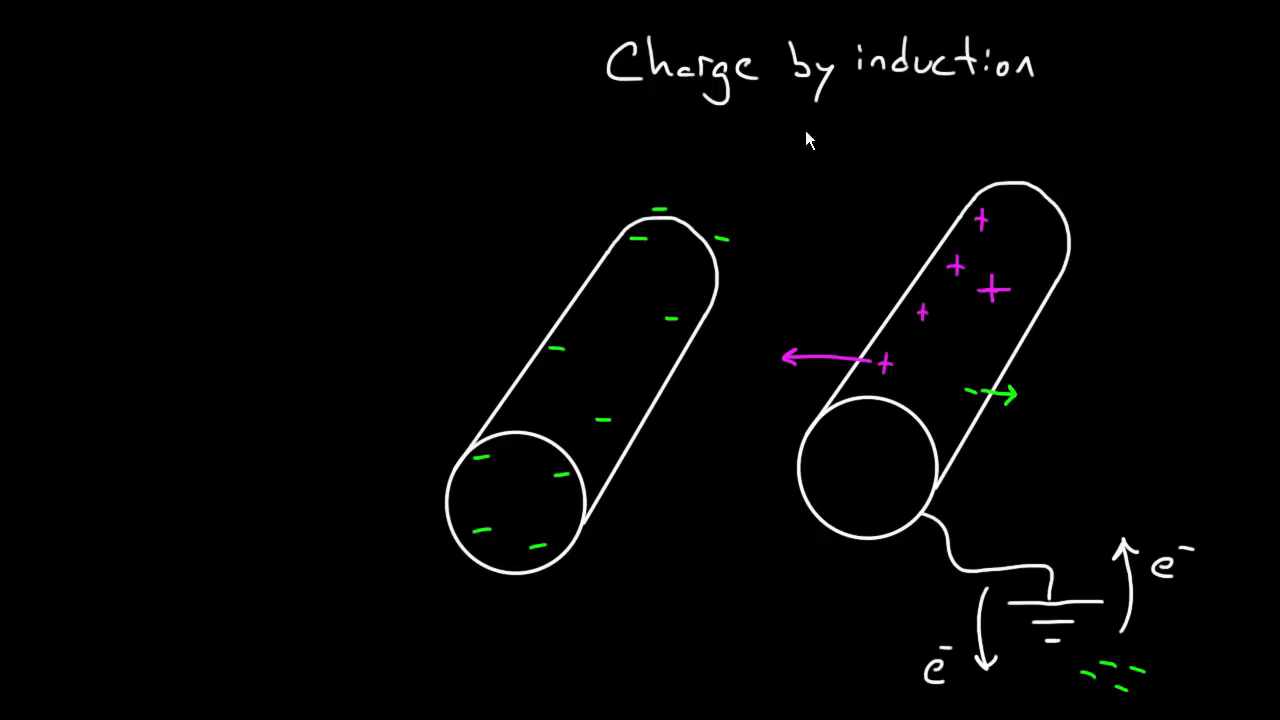 Charge by induction
e⁻
e⁻